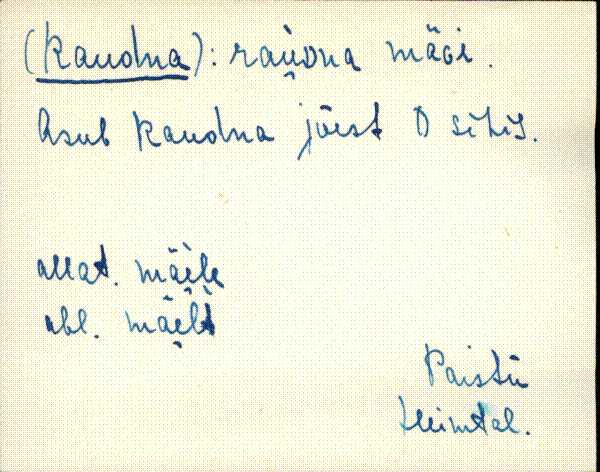 (Raudna): raùᴅna mäɢi.
Asub Raudna jõest O sihis.
allat. mäèle
abl. mäèlt
Paistu
Heimtal.